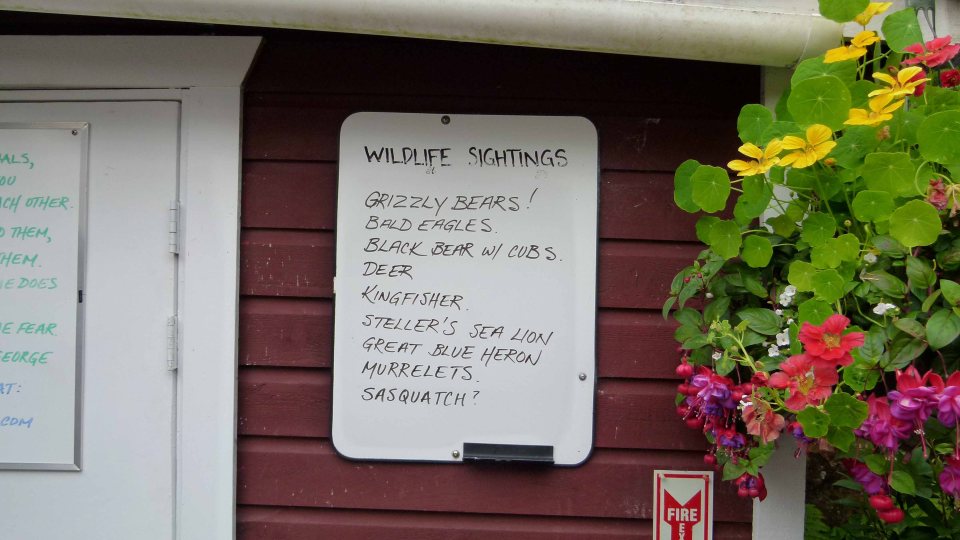 ALS,
OU
ACH OTHER.
D THEM,
THEM.
E DOES
E FEAR.
GEORGE
AT:
.COM
WILDLIFE SIGHTINGS
GRIZZLY BEARS!
BALD EAGLES.
BLACK BEAR W/ CUBS.
DEER
KINGFISHER.
STELLER'S SEA LION
GREAT BLUE HERON
MURRELETS.
SASQUATCH?
FIRE